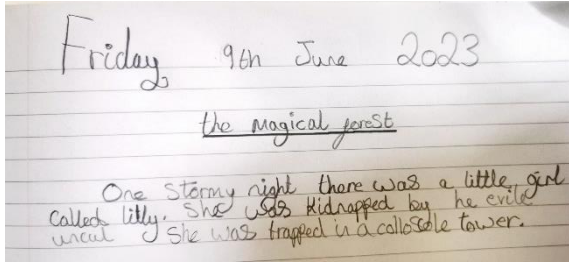 Friday 9th June 2023
the magical forest
One stormy night there was a little girl
called lilly. She was kidnapped by he evile
uncul She was trapped in a collosole tower.